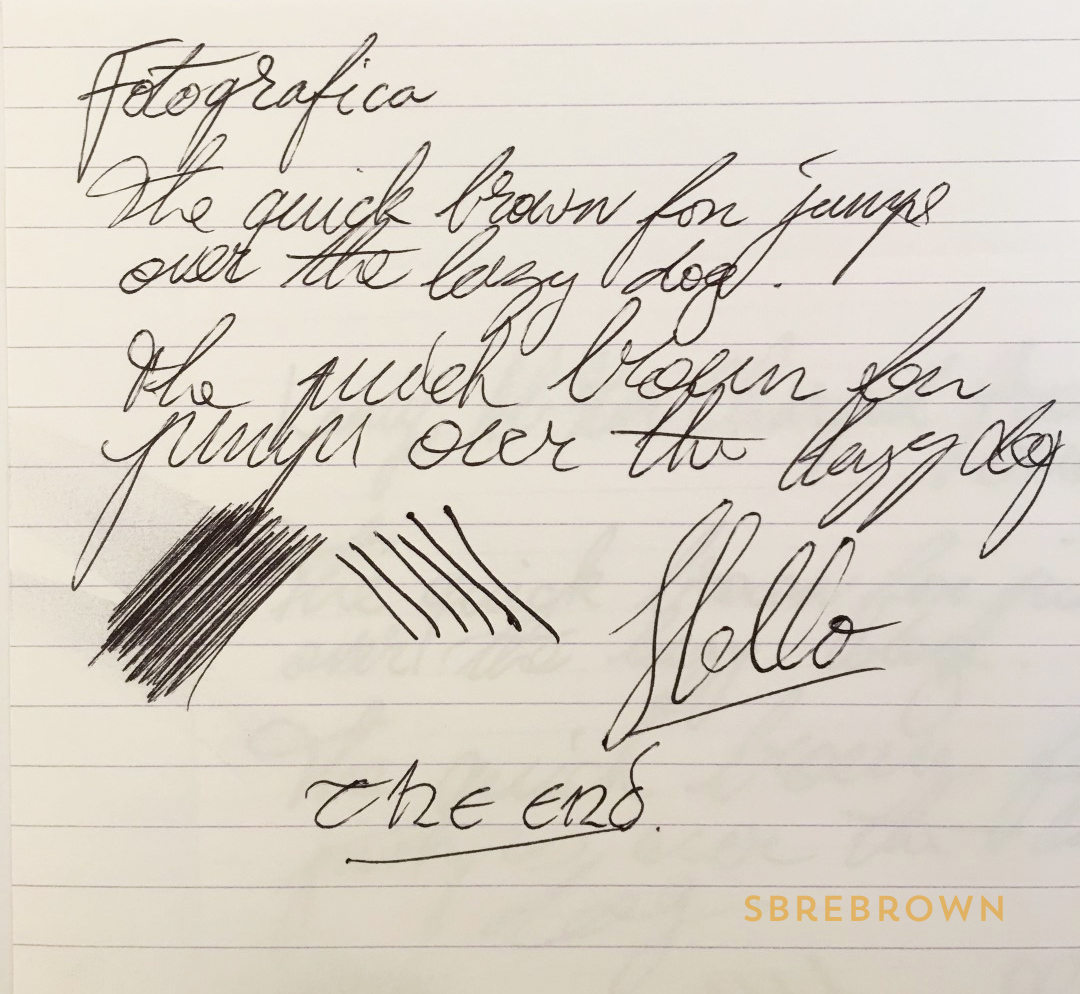 Fotografica
The quick brown fox jumps
over the lazy dog.
The quick brown fox
jumps over the lazy dog
Hello
The End.
SBREBROWN